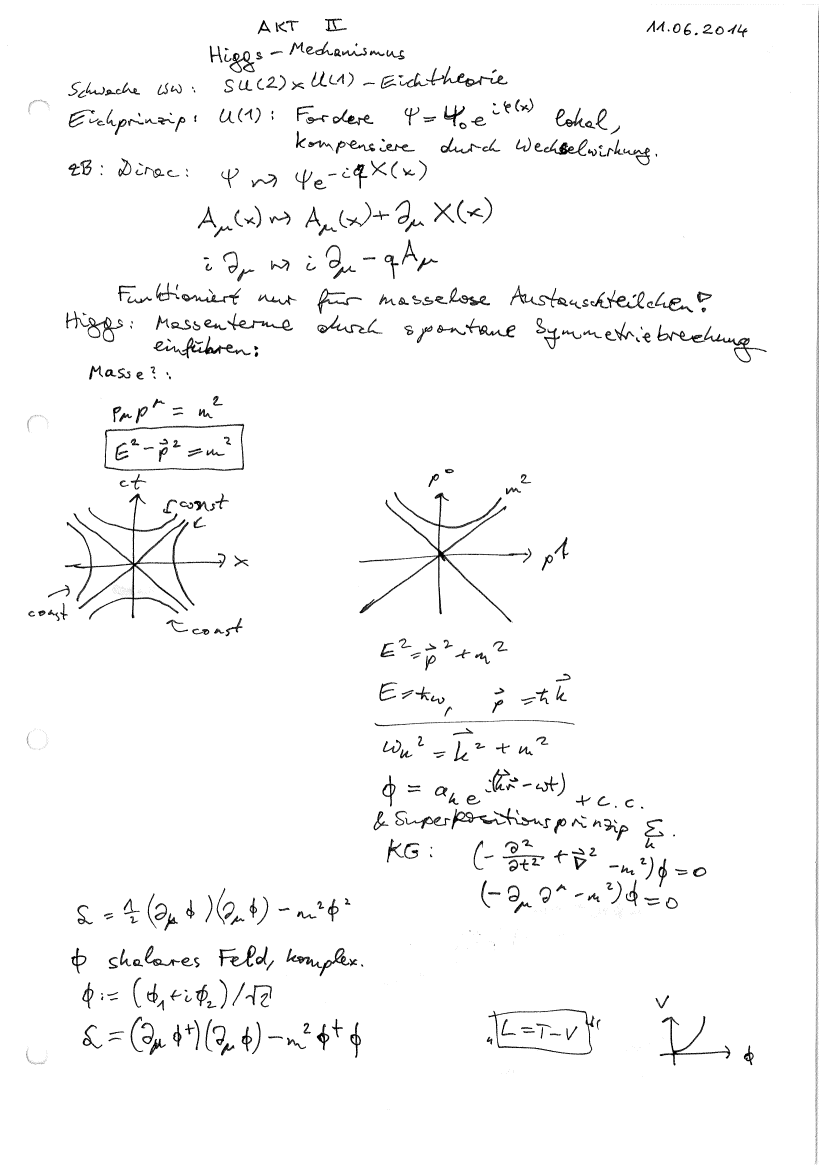 AKT II
11.06.2014
Higgs-Mechanismus
Schwache WW: SU(2)×U(1)-Eichtheorie
Eichprinzip: U(1): Fordere Ψ=Ψ₀e^{iφ(x)} lokal,
kompensiere durch Wechselwirkung.
zB: Dirac: Ψ ⇝ Ψe^{-iqX(x)}
A_μ(x) ⇝ A_μ(x)+∂_μ X(x)
i∂_μ ⇝ i∂_μ - qA_μ
Funktioniert nur für masselose Austauschteilchen!
Higgs: Massenterme durch spontane Symmetriebrechung
einführen:
Masse?:
p_μ p^μ = m²
E² - p⃗² = m²
ct
const
x
const
const
p⁰
m²
p¹
E² = p⃗² + m²
E = ħω, p⃗ = ħk⃗
ω_k² = k⃗² + m²
ϕ = a_k e^{i(k⃗r⃗ - ωt)} + c.c.
& Superpositionsprinzip Σ_k.
KG: (-∂²/∂t² + ∇⃗² - m²)ϕ = 0
(-∂_μ ∂^μ - m²)ϕ = 0
ℒ = 1/2 (∂_μ ϕ)(∂_μ ϕ) - m²ϕ²
ϕ skalares Feld, komplex.
ϕ := (ϕ₁+iϕ₂)/√2
ℒ = (∂_μ ϕ†)(∂_μ ϕ) - m² ϕ† ϕ
„L=T-V“
V
ϕ